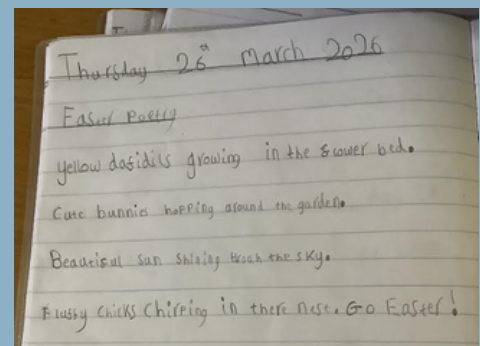 Thursday 26th March 2026
Easter Poetry
Yellow dafidils growing in the flower bed.
Cute bunnies hopping around the garden.
Beautiful sun shining throuh the sky.
Fluffy chicks chirping in there nest. Go Easter!